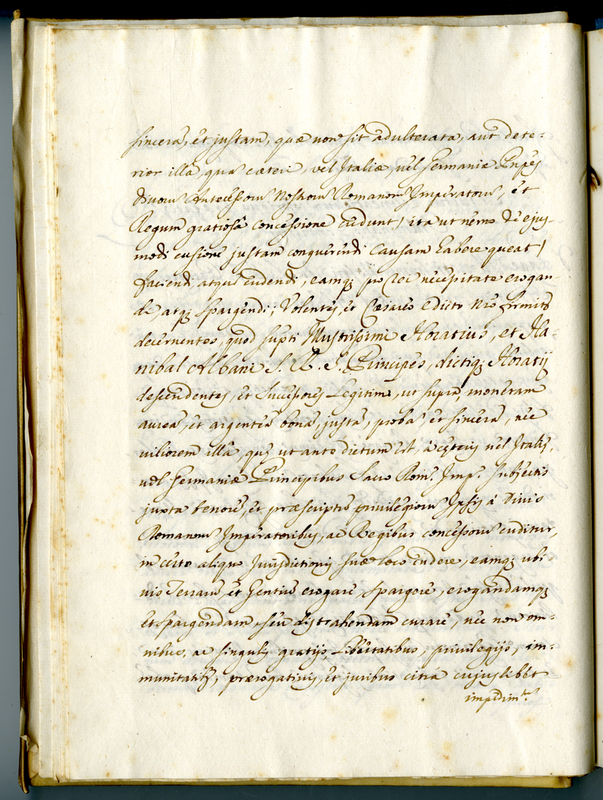 sincera, et justam, quæ non sit adulterata, aut dete-
rior illa, qua cæteri, vel Italiæ, vel Germaniæ Prnpes
Divum Antecessorum Nostrorum Romanor Imperatorum, et
Regum gratiosa concessione cudunt / ita ut nemo de ejus
modi cusione justam conquerendi causam habere queat /
faciendi atque cudendi, eamq; pro rei necessitate erogan
di atq; spargendi; Volentes, et Cæsareo Edicto Nro firmiter
decernentes, quod supti Illustrissimi Horatius, et Ha-
nibal Albani S. R. I. Principes, dictiq; Horatij
descendentes, et Successores Legitimi, ut supra, monetam
auream, et argenteam bonam, justam, probam et sinceram, nec
viliorem illa, quæ ut ante dictum est, à cæteris vel Italiæ,
vel Germaniæ Principibus Sacro Rom. Imp. subjectis
juxta tenorem, et præscriptum privilegiorum Ipsis à Divis
Romanorum Imperatoribus, ac Regibus concessorum cuditur,
in certo aliquo Jurisdictionis suæ loco cudere, eamq; ubi
vis Terrarum, et Gentium erogare, spargere, erogandamq;
et spargendam seu distrahendam curare, nec non om-
nibus, ac singulis gratijs, Libertatibus, privilegijs, im-
munitatib, prærogativis, et juribus citra cujuslibet
impedim.